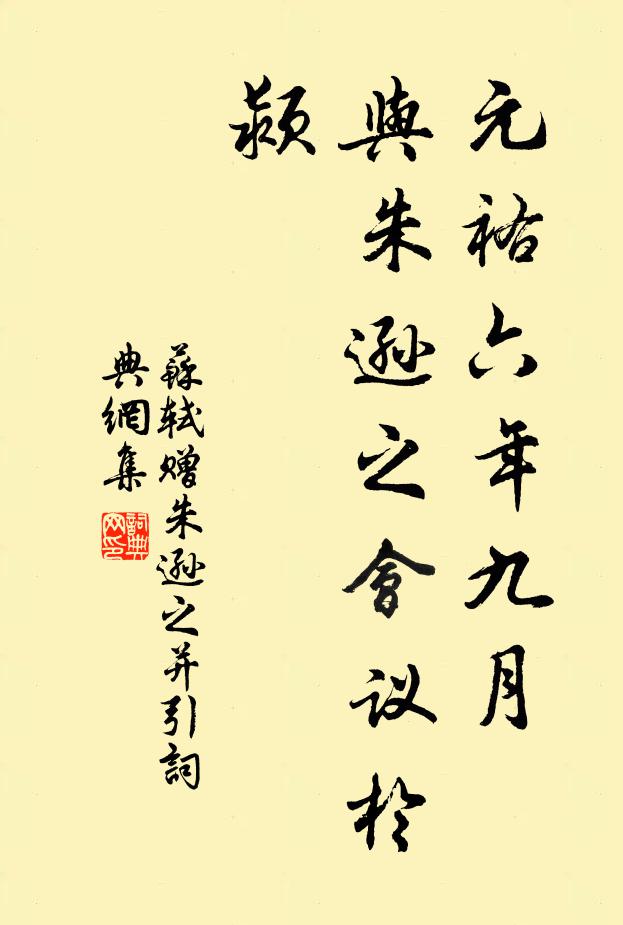 元祐六年九月
與朱遜之會议於
颍
蘇轼赠朱遜之并引詞
典網集
詞典网印